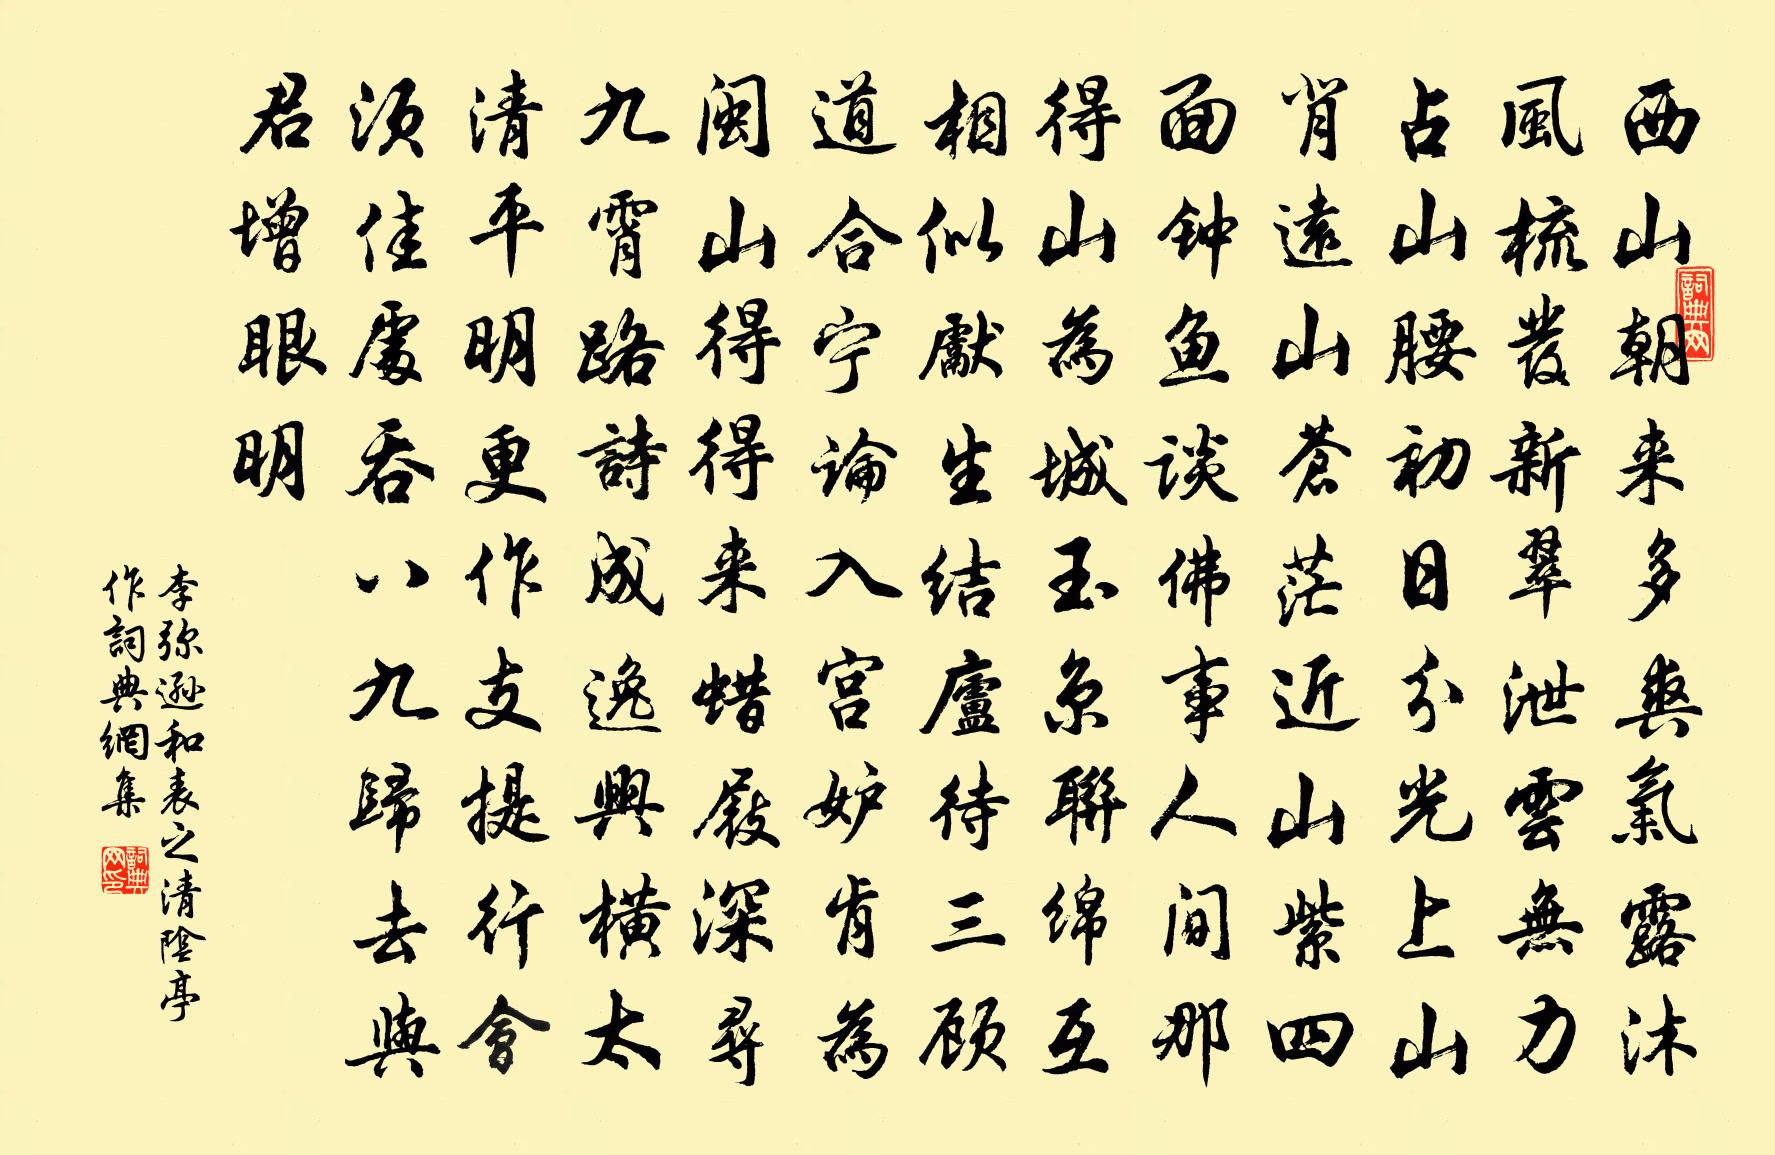 西山朝来多爽氣露沐
風梳發新翠泄雲無力
占山腰初日分光上山
肖遠山蒼茫近山紫四
面钟鱼谈佛事人间那
得山為城玉京聯绵互
相似獻生结廬待三顾
道合宁論入宫妒肯為
闽山得得来蜡屐深尋
九霄路詩成逸興橫太
清平明更作支提行會
须佳處吞八九歸去與
君增眼明
李弥遜和表之清陰亭
作詞典網集
詞典网
詞典网印